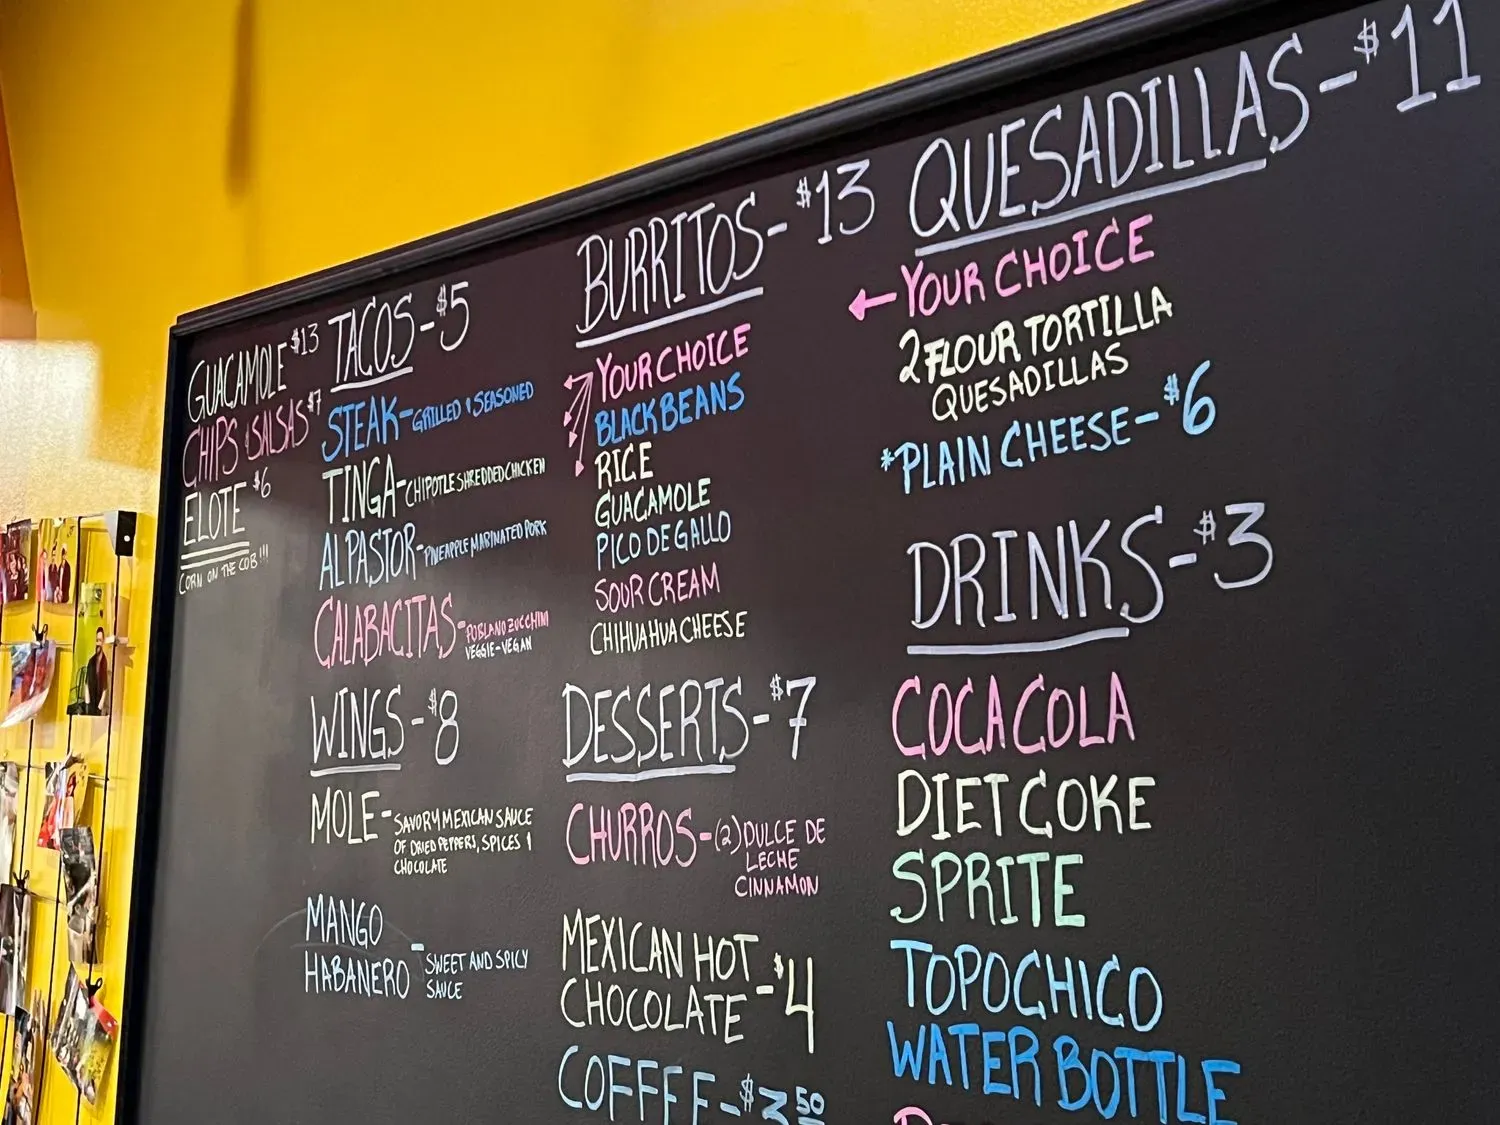 GUACAMOLE $13
CHIPS & SALSAS $7
ELOTE $6
CORN ON THE COB!!!
TACOS - $5
STEAK - GRILLED & SEASONED
TINGA - CHIPOTLE SHREDDED CHICKEN
AL PASTOR - PINEAPPLE MARINATED PORK
CALABACITAS - POBLANO ZUCCHINI
VEGGIE - VEGAN
WINGS - $8
MOLE - SAVORY MEXICAN SAUCE
OF DRIED PEPPERS, SPICES &
CHOCOLATE
MANGO
HABANERO - SWEET AND SPICY
SAUCE
BURRITOS - $13
YOUR CHOICE
BLACK BEANS
RICE
GUACAMOLE
PICO DE GALLO
SOUR CREAM
CHIHUAHUA CHEESE
DESSERTS - $7
CHURROS - (2) DULCE DE
LECHE
CINNAMON
MEXICAN HOT
CHOCOLATE - $4
COFFEE - $3.50
QUESADILLAS - $11
YOUR CHOICE
2 FLOUR TORTILLA
QUESADILLAS
*PLAIN CHEESE - $6
DRINKS - $3
COCA COLA
DIET COKE
SPRITE
TOPOCHICO
WATER BOTTLE